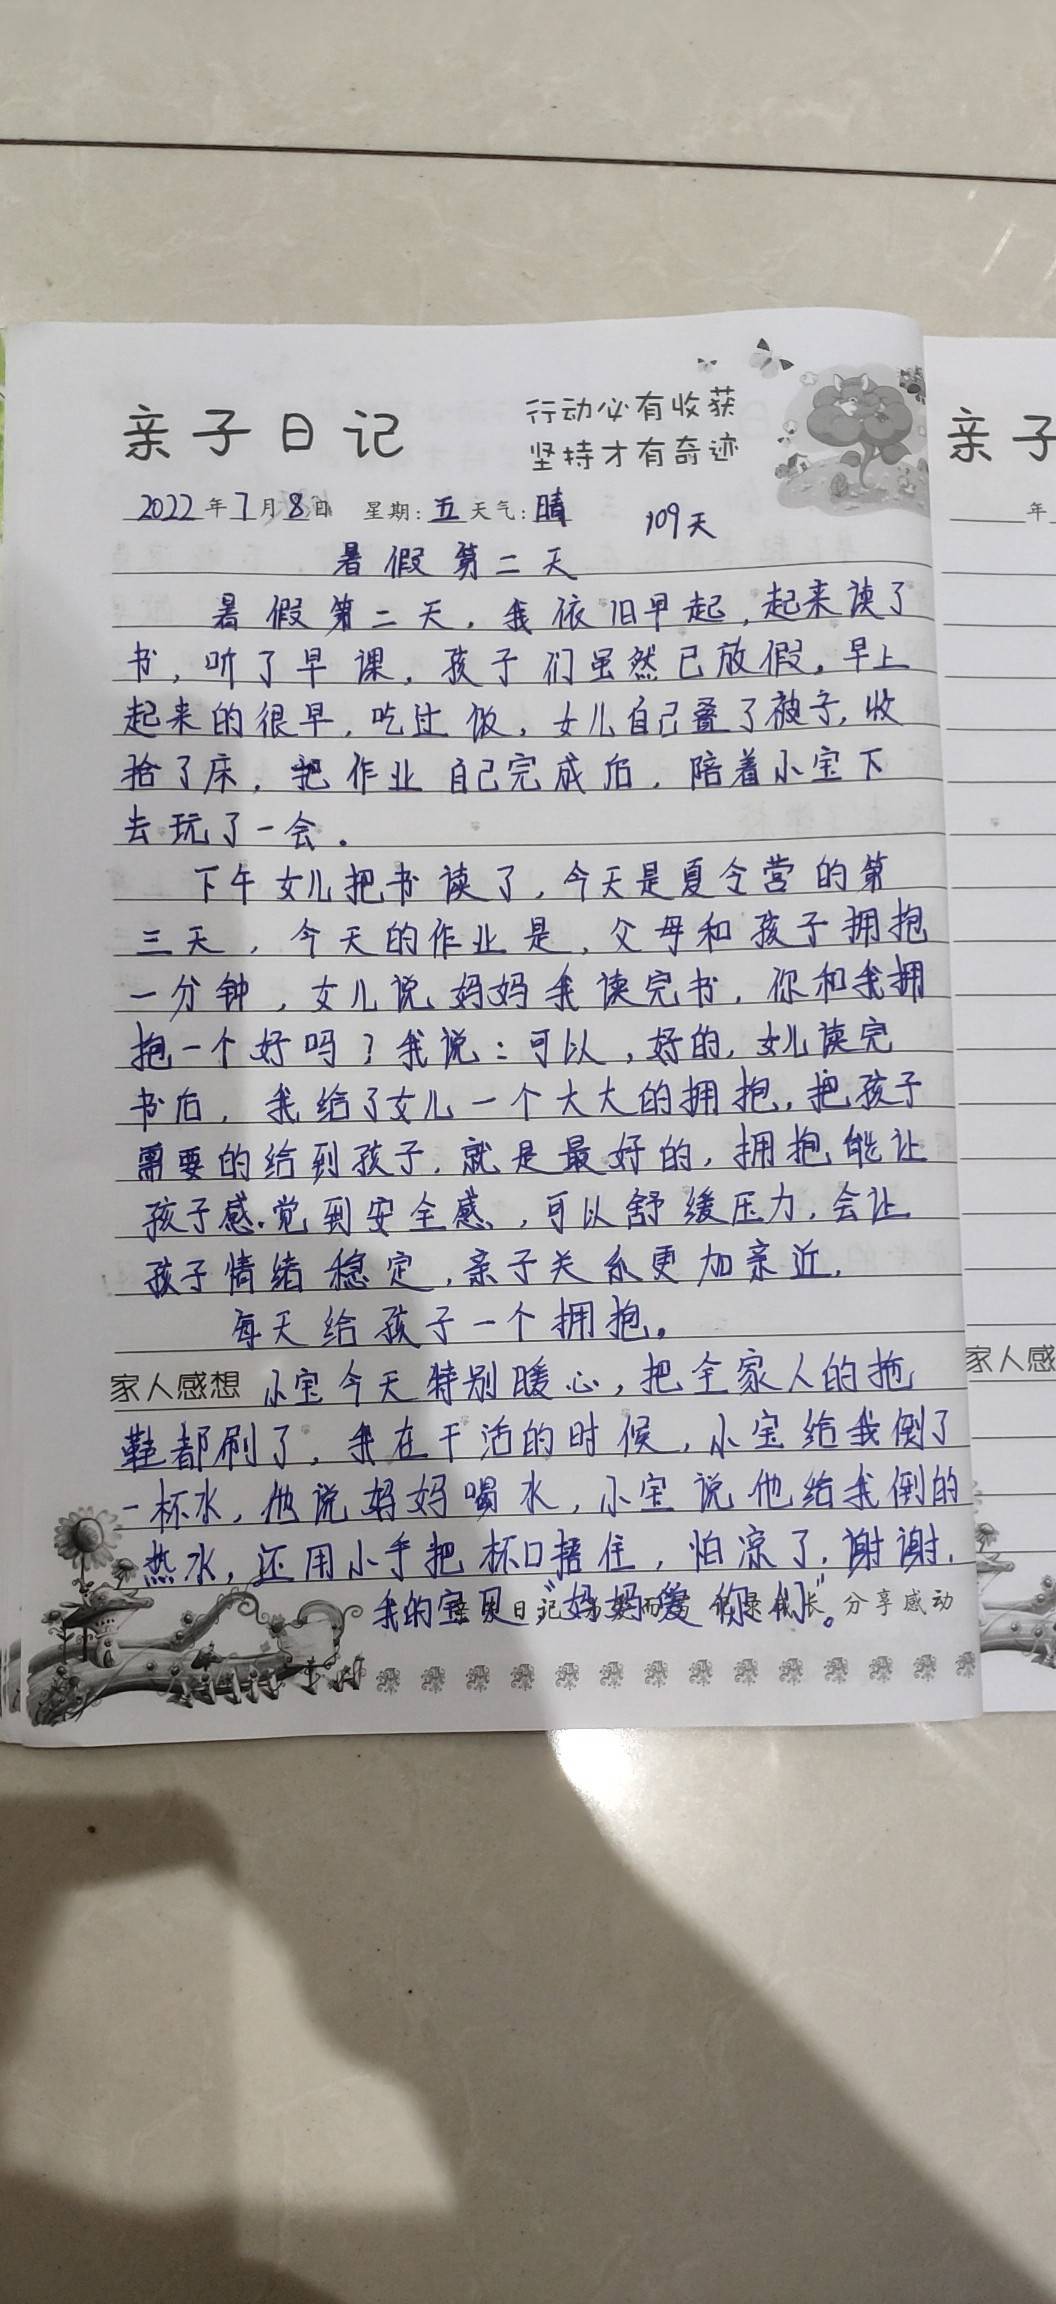 亲子日记
行动必有收获
坚持才有奇迹
2022年7月8日 星期:五天气:晴 109天
暑假第二天
暑假第二天,我依旧早起,起来读了
书,听了早课,孩子们虽然已放假,早上
起来的很早,吃过饭,女儿自己叠了被子,收
拾了床,把作业自己完成后,陪着小宝下
去玩了一会。
下午女儿把书读了,今天是夏令营的第
三天,今天的作业是,父母和孩子拥抱
一分钟,女儿说妈妈我读完书,你和我拥
抱一个好吗?我说:可以,好的,女儿读完
书后,我给了女儿一个大大的拥抱,把孩子
需要的给到孩子,就是最好的,拥抱能让
孩子感觉到安全感,可以舒缓压力,会让
孩子情绪稳定,亲子关系更加亲近,
每天给孩子一个拥抱。
家人感想 小宝今天特别暖心,把全家人的拖
鞋都刷了,我在干活的时候,小宝给我倒了
一杯水,他说妈妈喝水,小宝说他给我倒的
热水,还用小手把杯口捂住,怕凉了,谢谢,
我的宝贝"妈妈爱你们"。
日记 长 分享感动
亲子
年
家人感